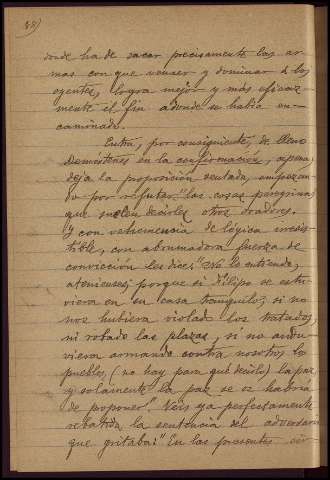 48)
donde ha de sacar precisamente las ar-
mas con que vencer y dominar á los
oyentes, logra mejor y más eficaz-
mente el fin adonde se había en-
caminado.
Entra, por consiguiente, de lleno
Demóstenes en la confirmación, apenas
deja la proposición sentada, empezan-
do por refutar "las cosas peregrinas
que suelen deciros otros oradores.
Y con vehemencia de lógica irresis-
tible, con abrumadora fuerza de
convicción les dice: "No lo entiendo,
atenienses, porque si Filipo se estu-
viera en su casa tranquilo, si no
nos hubiera violado los tratados,
ni robado las plazas, si no andu-
viera armando contra nosotros los
pueblos, (no hay para qué decirlo) la paz
y solamente la paz se os habría
de proponer". Veis ya perfectamente
rebatida la sentencia del adversario
que gritaba: "En las presentes cir-